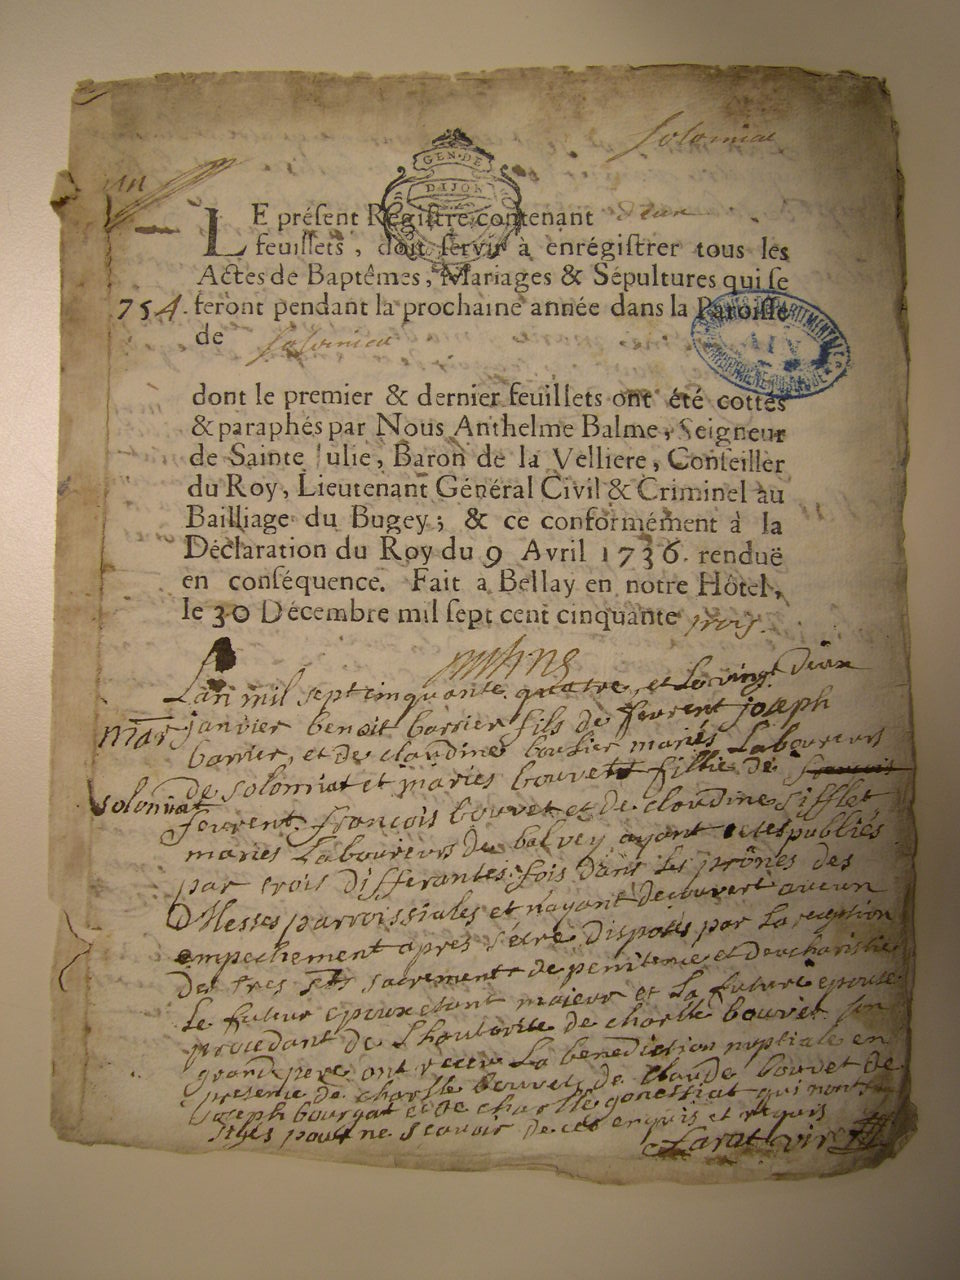 Solomiac
GEN·DE
DIJON
LE présent Régistre contenant
feuillets, doit servir à enrégistrer tous les
Actes de Baptêmes, Mariages & Sépultures qui se
754. feront pendant la prochaine année dans la Paroisse
de
dont le premier & dernier feuillets ont été cottés
& paraphés par Nous Anthelme Balme, Seigneur
de Sainte Julie, Baron de la Velliere, Conseiller
du Roy, Lieutenant Général Civil & Criminel au
Bailliage du Bugey; & ce conformément à la
Déclaration du Roy du 9 Avril 1736. renduë
en conséquence. Fait a Bellay en notre Hôtel,
le 30 Décembre mil sept cent cinquante trois.
Lan mil sept cinquante quatre, et le vingt deux
mar janvier benoit barrier fils de feu rent joseph
barrier, et de claudine bouhier mariés Laboureurs
de solomiat et maries bouvet fillie de
solomiat
feu rent. francois bouvet et de claudine sifflet
maries Laboureurs de balvey ayant etes publiés
par trois differantes fois dans les prônes des
Messes parroissiales et nayant decouvert aucun
empechement apres s'etre disposés par La reception
des tres sts sacrements de penitence et deucharistie
Le futur epoux etant majeur et La future epouse
procedant de Lhoutorite de charle bouvet son
grand pere ont receu La benediction nuptiale en
presence de charle bouvet, de claude bouvet de
joseph bourgat et de charle gonettiat qui nont
signes pour ne scavoir de ces enquis et requis
Larat vire